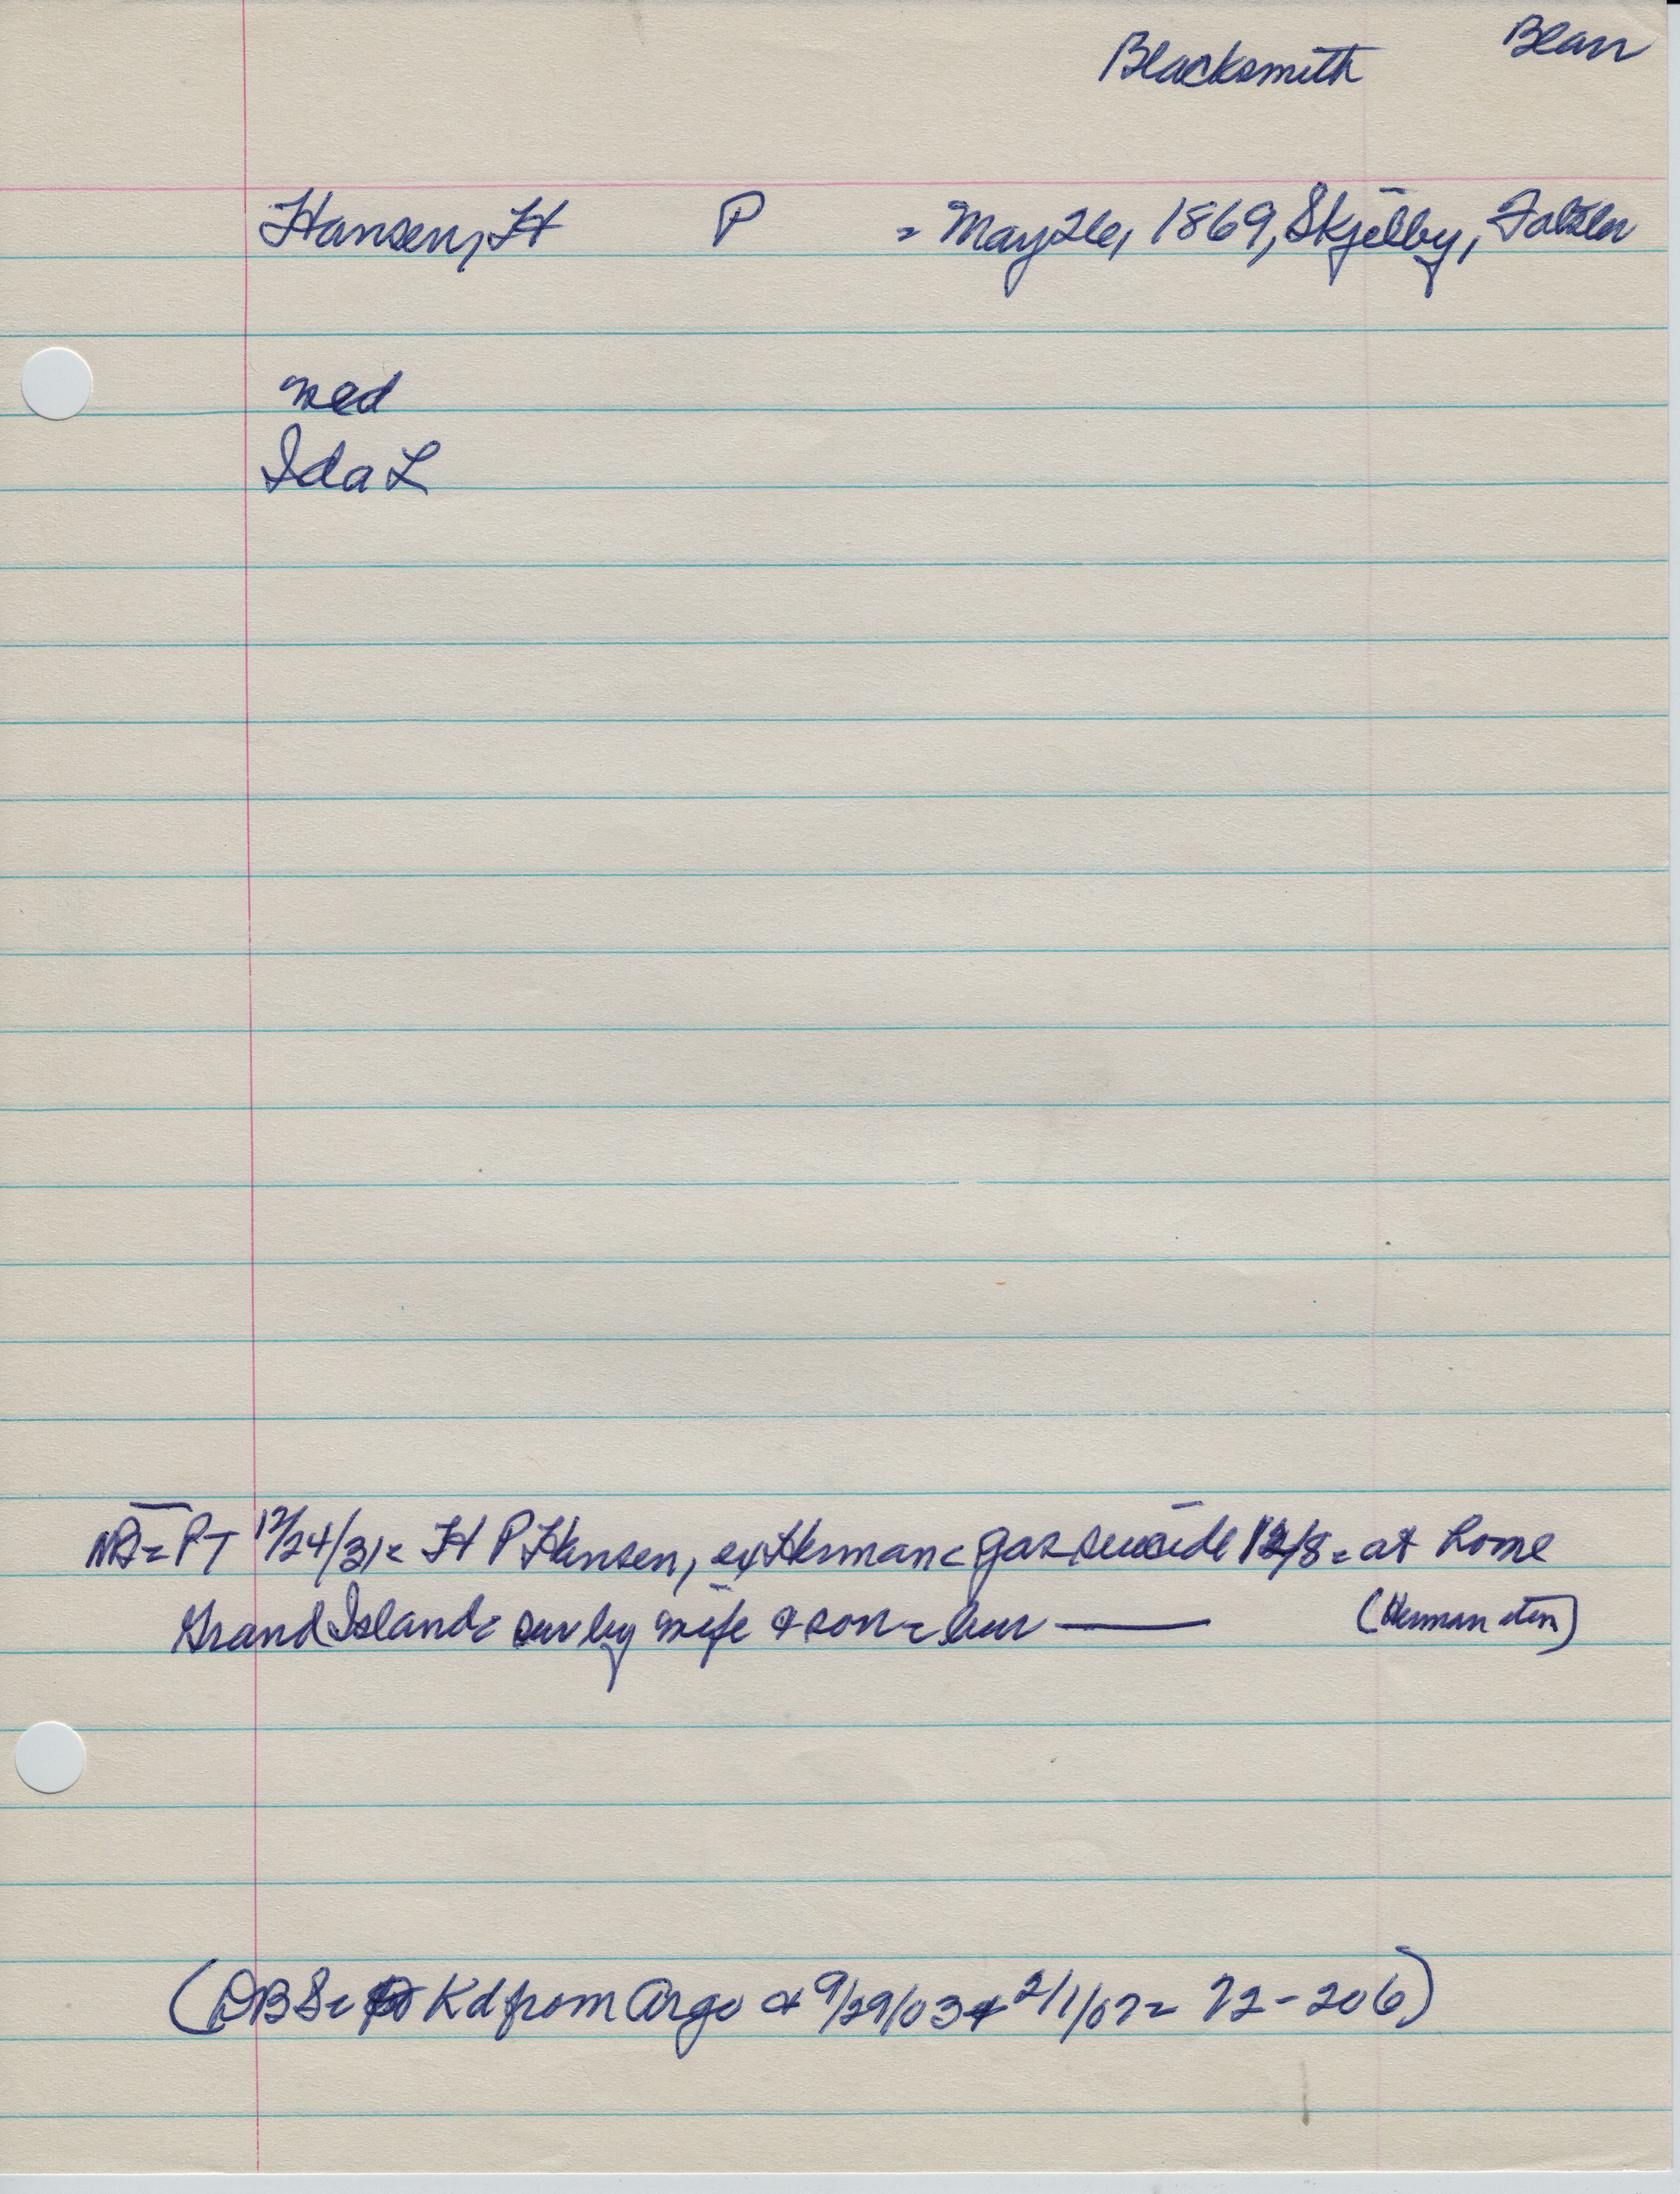 Blacksmith Blair
Hansen, H P = May 26, 1869, Skjelby, Falster
wed
Ida L
PT 12/24/31= H P Hansen, ex Herman = gas suicide 12/8 = at home
Grand Island = sur by wife & son = bur — (Herman item)
(DBS= Kd from Argo & 9/29/03 & 2/1/07= 72-206)